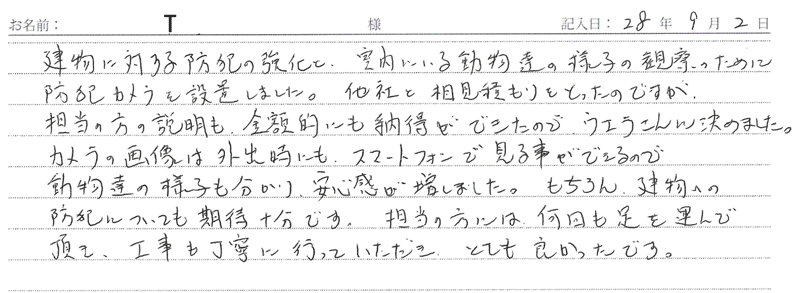 お名前： T 様 記入日： 28 年 9 月 2 日
建物に対する防犯の強化と、室内にいる動物達の様子の観察のために
防犯カメラを設置しました。 他社と相見積もりをとったのですが、
担当の方の説明も、金額的にも納得ができたので、ウエラこんに決めました。
カメラの画像は外出時にも、スマートフォンで見る事ができるので
動物達の様子も分かり、安心感が増しました。 もちろん、建物への
防犯についても期待十分です。 担当の方には、何回も足を運んで
頂き、工事も丁寧に行っていただき、とても良かったです。